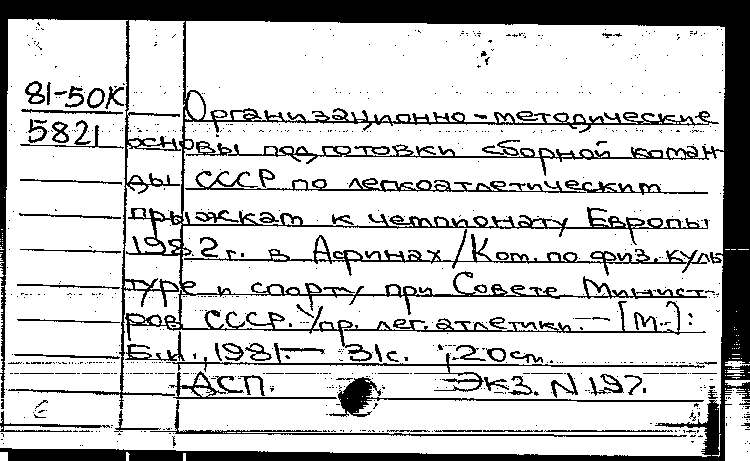 81-50К
5821
Организационно-методические
основы подготовки сборной коман-
ды СССР по легкоатлетическим
прыжкам к чемпионату Европы
1982г. в Афинах/Ком. по физ. куль
туре и спорту при Совете Минист-
ров СССР. Упр. лег. атлетики. — [М.]:
Б.и., 1981. — 31с. ; 20см.
АСП. Экз. N 197.
6